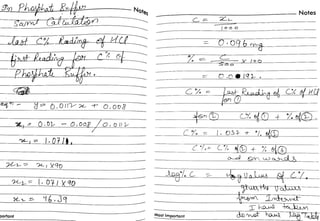 In Phosphat Buffer
Same Calculation
last C% Reading of HCl
first Reading for C% of
Phosphate Buffer.
eqn - y = 0.0112x + 0.008
x₁ = 0.02 - 0.008 / 0.0112
x₁ = 1.0711.
x₂ = x₁ x 90
x₂ = 1.071 x 90
x₂ = 96.39
Important
Notes
C = x₂
1000
= 0.096 mg
% = C / 500 x 100
= 0.0192.
C% = Last Reading of C% of HCl
for ①
for ② C% of ① + % of ②.
C% = 1.032 + % of ①
C% = C% of ② + % of ③
and on wards
log % C = log Value of C%.
values
from Internet
I have taken
do not have log Table
Most Important
Notes